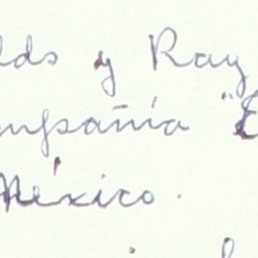 lds y Ray
ompañía "E
México.